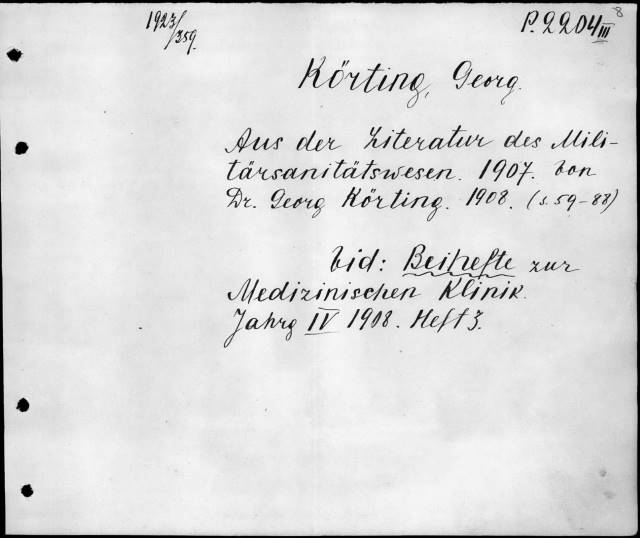 1923/359.
P. 2204 III
8
Körting, Georg.
Aus der Literatur des Mili-
tärsanitätswesen. 1907. von
Dr. Georg Körting. 1908. (s. 59-88)
Vid: Beihefte zur
Medizinischen Klinik.
Jahrg IV 1908. Heft 3.